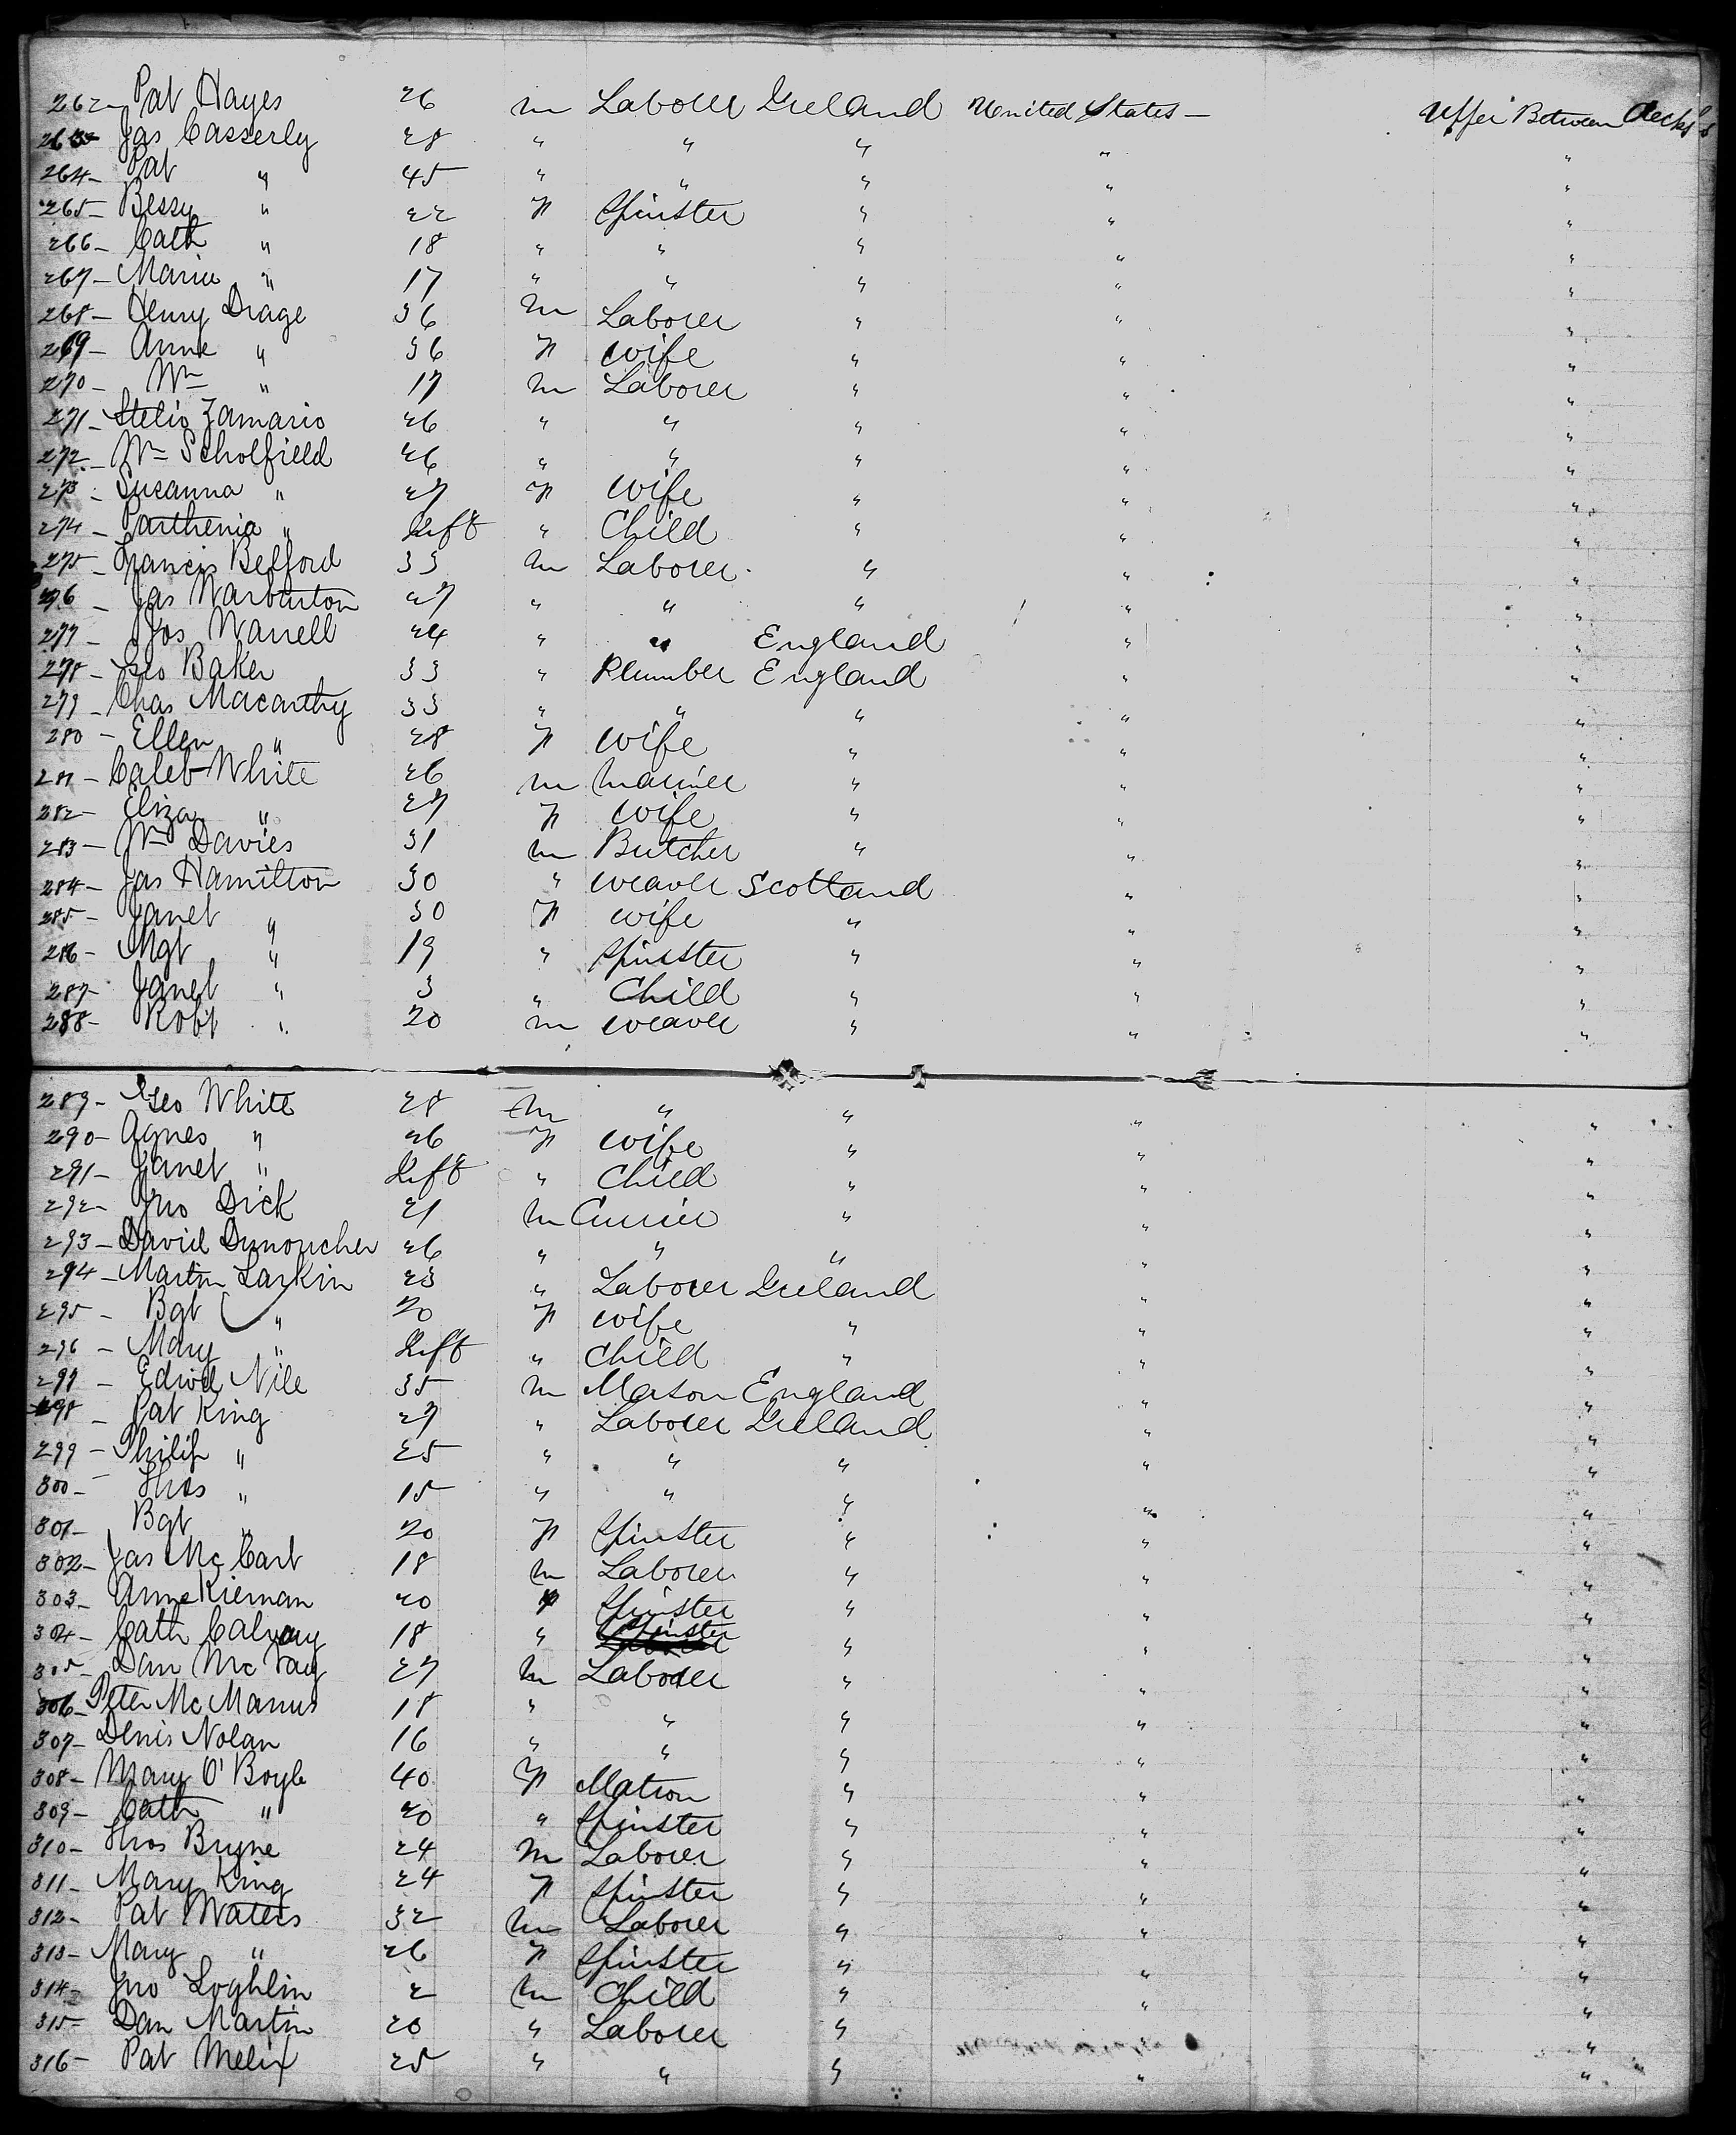 262- Pat Hayes 26 m Laborer Ireland United States — Upper Between decks
263- Jas Casserly 28 " " " " "
264- Pat " 45 " " " " "
265- Bessy " 22 F Spinster " " "
266- Cath " 18 " " " " "
267- Maria " 17 " " " " "
268- Henry Drage 36 m Laborer " " "
269- Anne " 36 F wife " " "
270- Wm " 17 m Laborer " " "
271- Stelio Zamario 26 " " " " "
272- Wm Scholfield 26 " " " " "
273- Susanna " 27 F wife " " "
274- Parthenia " Inft " Child " " "
275- Francis Belford 33 m Laborer " " "
276- Jas Warburton 27 " " " " "
277- Jos Warrell 24 " " England " "
278- Geo Baker 33 " Plumber England " "
279- Chas Macarthy 33 " " " " "
280- Ellen " 28 F wife " " "
281- Caleb White 26 m mariner " " "
282- Eliza " 27 F wife " " "
283- Wm Davies 31 m Butcher " " "
284- Jas Hamilton 30 " weaver Scotland " "
285- Janet " 30 F wife " " "
286- Mgt " 19 " Spinster " " "
287- Janet " 3 " Child " " "
288- Robt " 20 m weaver " " "
289- Geo White 28 m " " " "
290- Agnes " 26 F wife " " "
291- Janet " Inft " Child " " "
292- Jno Dick 21 m Currier " " "
293- David 26 " " " " "
294- Martin Larkin 23 " Laborer Ireland " "
295- Bgt " 20 F wife " " "
296- Mary " Inft " Child " " "
297- Edwd Nile 35 m Mason England " "
298- Pat King 27 " Laborer Ireland " "
299- Philip " 25 " " " " "
300- Thos " 15 " " " " "
301- Bgt " 20 F Spinster " " "
302- Jas McCart 18 m Laborer " " "
303- Anne Kiernan 20 F Spinster " " "
304- Cath Calvay 18 " Spinster " " "
305- Dan McVay 27 m Laborer " " "
306- Peter McManus 18 " " " " "
307- Denis Nolan 16 " " " " "
308- Mary O'Boyle 40 F Matron " " "
309- Cath " 20 " Spinster " " "
310- Thos Bryne 24 m Laborer " " "
311- Mary King 24 F Spinster " " "
312- Pat Waters 32 m Laborer " " "
313- Mary " 26 F Spinster " " "
314- Jno Loghlin 2 m Child " " "
315- Dan Martin 20 " Laborer " " "
316- Pat Melix 25 " " " " "